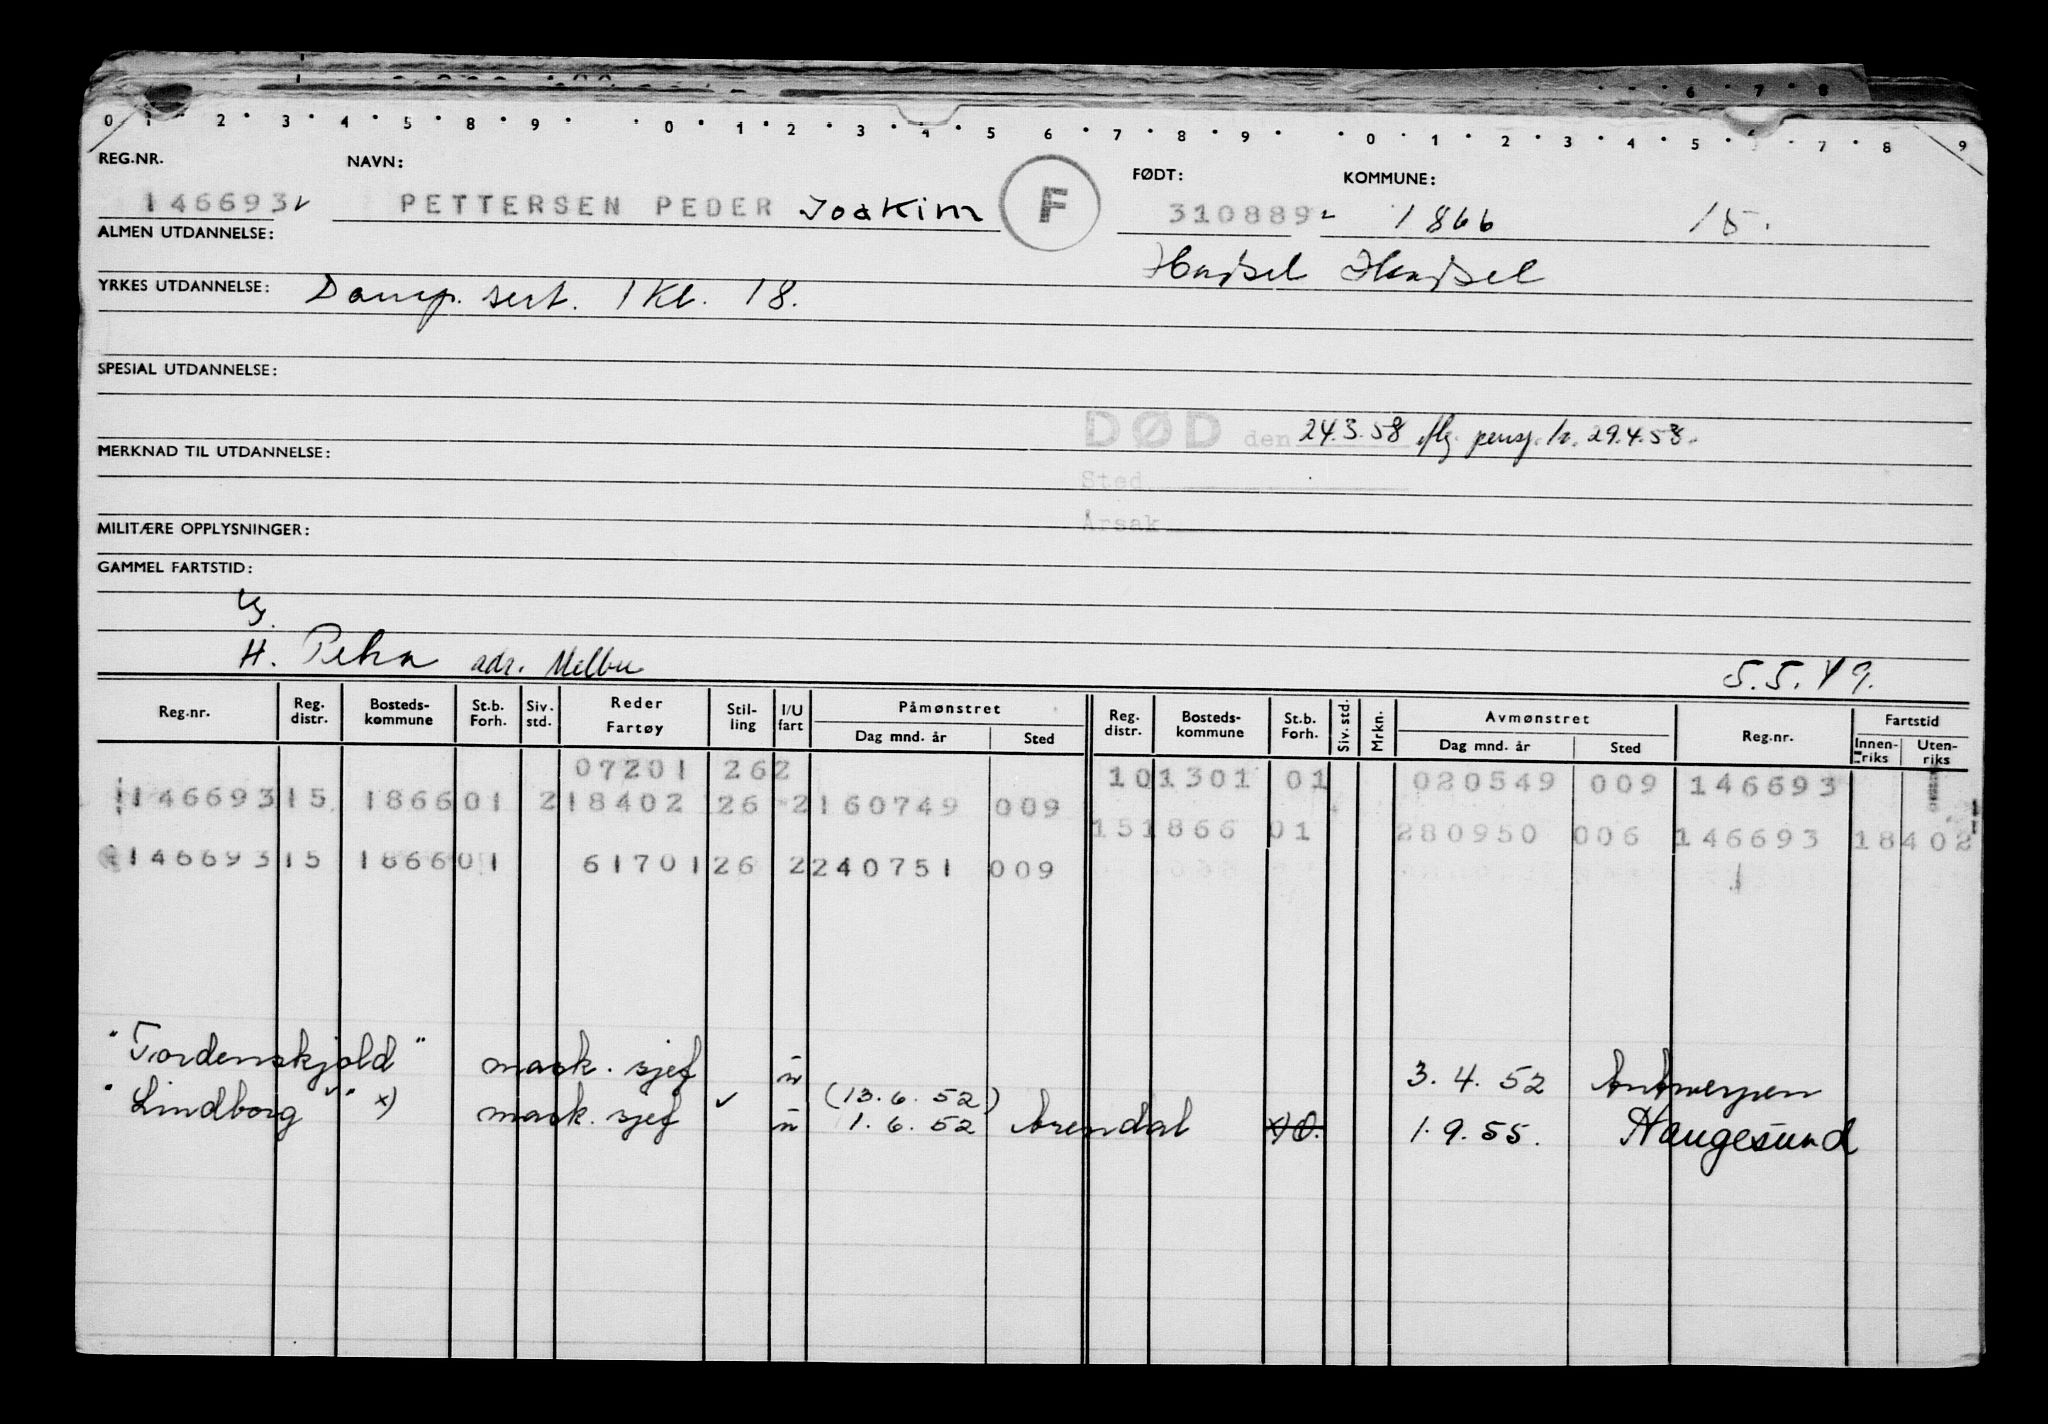 0 1 2 3 4 5 8 9 0 1 2 3 4 5 6 7 8 9 0 1 2 3 4 5 7 8 9
6 7 8
REG.NR. NAVN: FØDT: KOMMUNE:
146693 PETTERSEN PEDER Joakim F 310889 1866 15.
ALMEN UTDANNELSE: Hadsel Hadsel
YRKES UTDANNELSE: Damp. sert. 1 Kl. 18.
SPESIAL UTDANNELSE:
DØD den 24.3.58 flg. pensj. tr. 29.4.58.
MERKNAD TIL UTDANNELSE:
Sted
Årsak
MILITÆRE OPPLYSNINGER:
GAMMEL FARTSTID:
H. adr. Melbu 5.5.49.
Reg.nr. Reg. distr. Bosteds-kommune St.b. Forh. Siv. std. Reder Fartøy Stil-ling I/U fart Påmønstret Dag mnd. år Sted Reg. distr. Bosteds-kommune St.b. Forh. Siv. std. Mrkn. Avmønstret Dag mnd. år Sted Reg.nr. Fartstid Innen-riks Uten-riks
07201 262 101301 01 020549 009 146693
146693 15 1866 01 2 18402 26 2 160749 009
151866 01 280950 006 146693 18402
146693 15 1866 01 61701 26 2 240751 009
"Tordenskjold" mask. sjef u 3.4.52 Antwerpen
"Lindborg" x) mask. sjef ✓ u (13.6.52) 1.6.52 Arendal 1.9.55. Haugesund